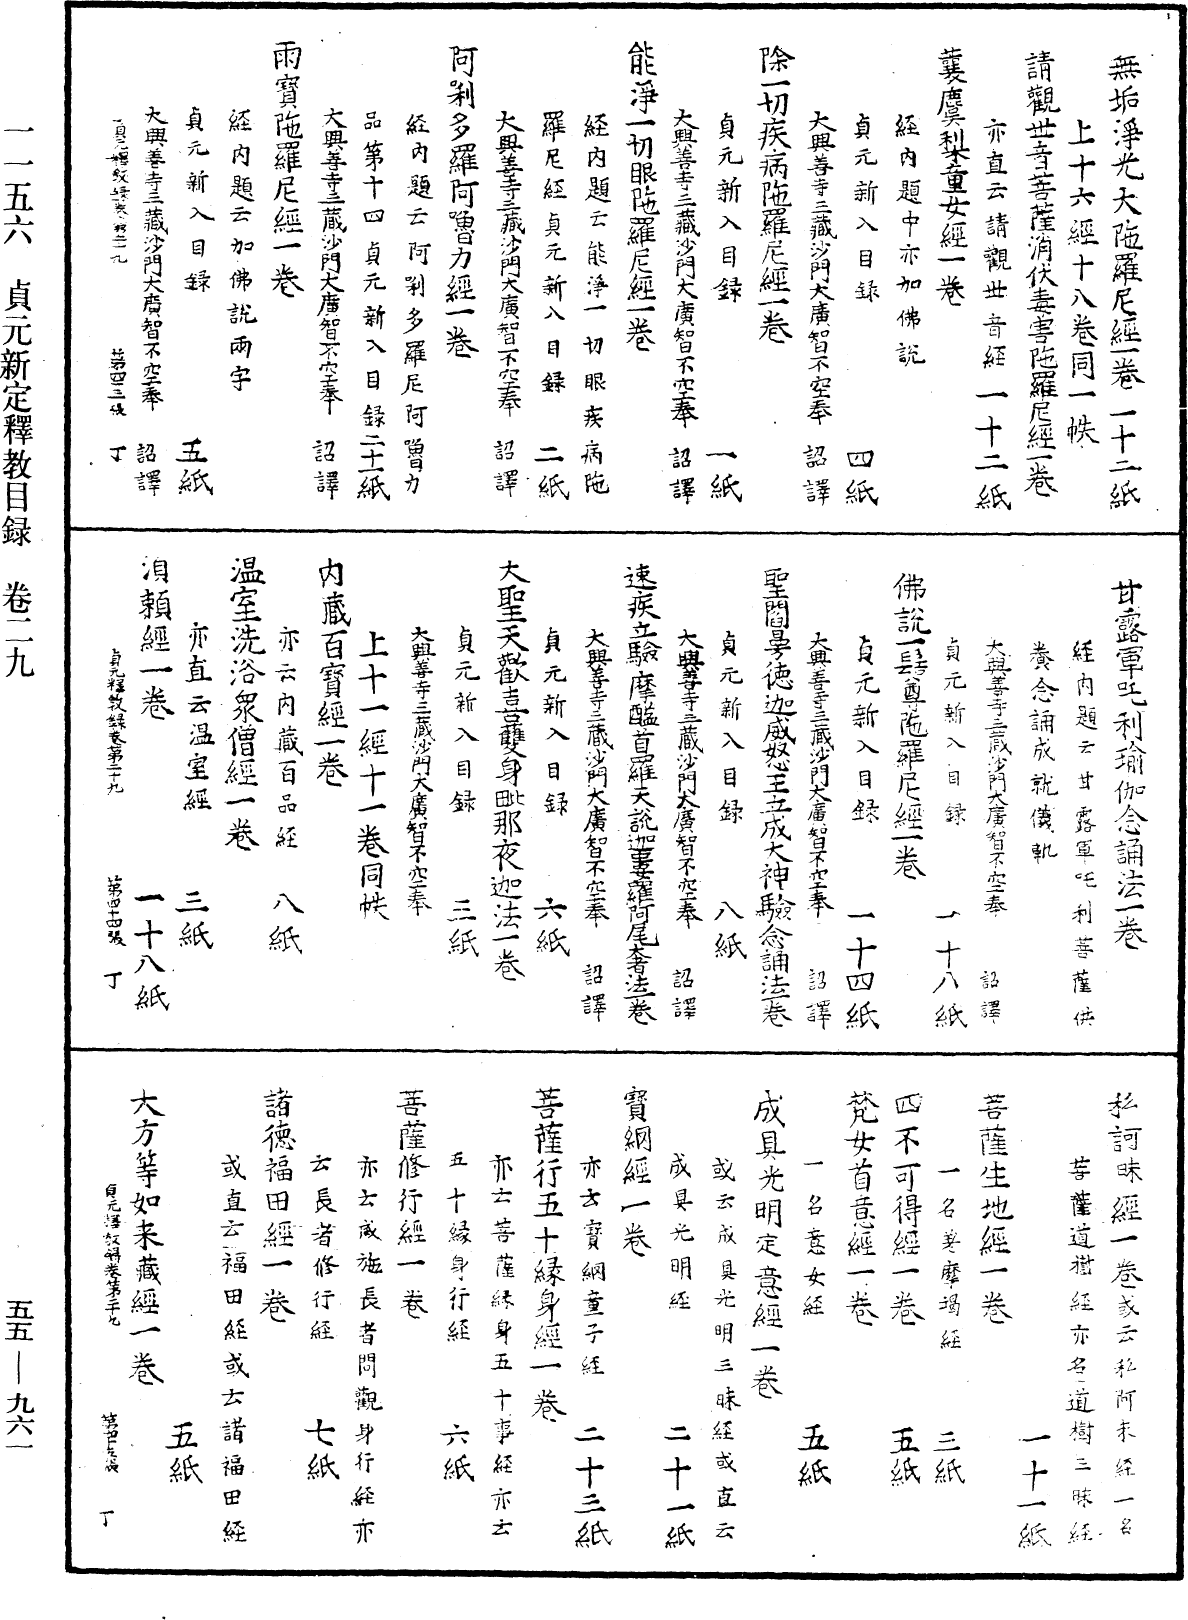 無垢淨光大陁羅尼經一卷 一十二紙
上十六經十八卷同一帙
請觀世音菩薩消伏毒害陁羅尼經一卷
亦直云請觀世音經 一十二紙
蘘麌梨童女經一卷
經內題中亦加佛說
貞元新入目録 四紙
大興善寺三藏沙門大廣智不空奉 詔譯
除一切疾病陁羅尼經一卷
貞元新入目録 一紙
大興善寺三藏沙門大廣智不空奉 詔譯
能淨一切眼陁羅尼經一卷
經內題云能淨一切眼疾病陁
羅尼經貞元新入目録 二紙
大興善寺三藏沙門大廣智不空奉 詔譯
阿唎多羅阿嚕力經一卷
經內題云阿唎多羅尼阿嚕力
品第十四貞元新入目録 二十一紙
大興善寺三藏沙門大廣智不空奉 詔譯
雨寳陁羅尼經一卷
經內題云加佛說兩字
貞元新入目録 五紙
大興善寺三藏沙門大廣智不空奉 詔譯
貞元釋教録卷第二十九 第四十三張 丁
甘露軍吒利瑜伽念誦法一卷
經內題云甘露軍吒利菩薩供
養念誦成就儀軌
貞元新入目録 一十八紙
大興善寺三藏沙門大廣智不空奉 詔譯
佛說一髻尊陁羅尼經一卷
貞元新入目録 一十四紙
大興善寺三藏沙門大廣智不空奉 詔譯
聖閻曼德迦威怒王立成大神驗念誦法一卷
貞元新入目録 八紙
大興善寺三藏沙門大廣智不空奉 詔譯
速疾立驗摩醯首羅天說迦婁羅阿尾奢法一卷
大興善寺三藏沙門大廣智不空奉 詔譯
貞元新入目録 六紙
大聖天歡喜雙身毗那夜迦法一卷
貞元新入目録 三紙
大興善寺三藏沙門大廣智不空奉
上十一經十一卷同帙
內藏百寳經一卷
亦云內藏百品經 八紙
温室洗浴衆僧經一卷
亦直云温室經 三紙
湏賴經一卷 一十八紙
貞元釋教録卷第二十九 第四十四張 丁
私訶昧經一卷或云私阿末經一名
菩薩道樹經亦名道樹三昧經
一十一紙
菩薩生地經一卷
一名差摩竭經 三紙
四不可得經一卷 五紙
梵女首意經一卷
一名意女經 五紙
成具光明定意經一卷
或云成具光明三昧經或直云
成具光明經 二十一紙
寳網經一卷
亦云寳網童子經 二十三紙
菩薩行五十縁身經一卷
亦云菩薩縁身五十事經亦云
五十縁身行經 六紙
菩薩修行經一卷
亦云威施長者問觀身行經亦
云長者修行經 七紙
諸德福田經一卷
或直云福田經或云諸福田經
五紙
大方等如来藏經一卷
貞元釋教録卷第二十九 第四十五張 丁
一一五六 貞元新定釋教目録 卷二九
五五—九六一